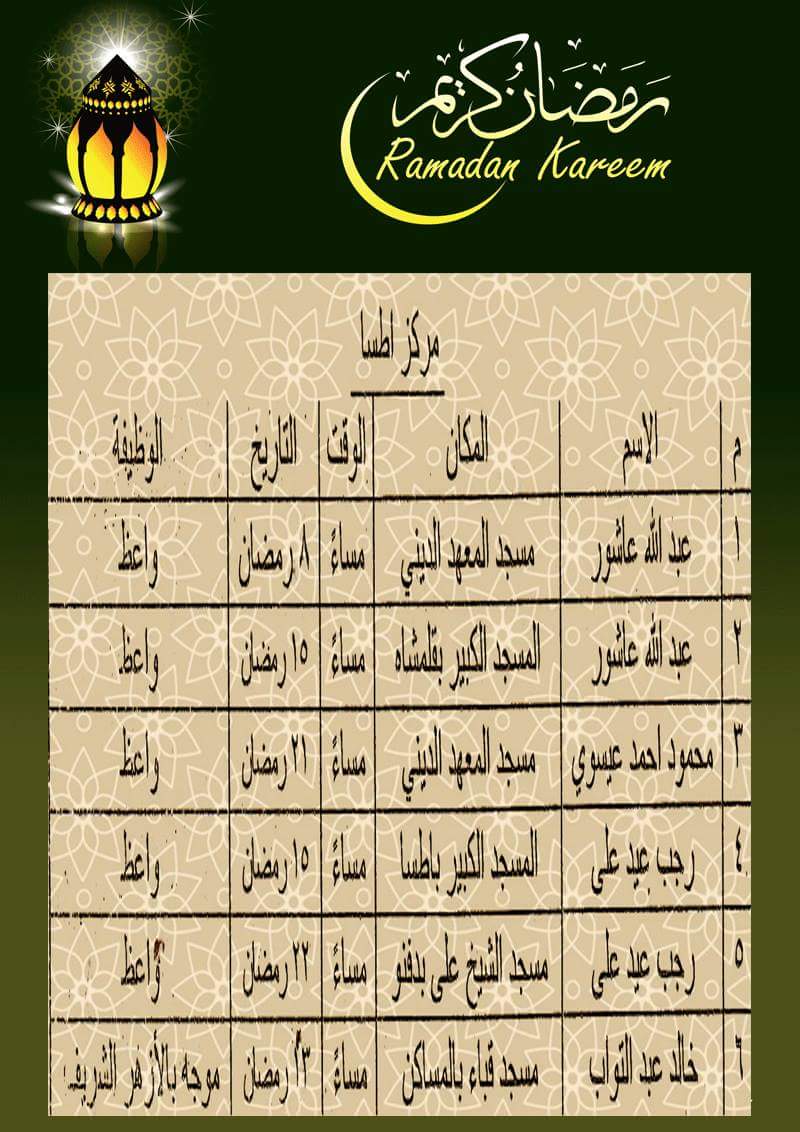 رَمَضَان كَريم
Ramadan Kareem
مركز اطسا
م الاسم المكان الوقت التاريخ الوظيفة
١ عبد الله عاشور مسجد المعهد الديني مساءً ٨ رمضان واعظ
٢ عبد الله عاشور المسجد الكبير بقلمشاه مساءً ١٥ رمضان واعظ
٣ محمود احمد عيسوي مسجد المعهد الديني مساءً ٢١ رمضان واعظ
٤ رجب عيد على المسجد الكبير باطسا مساءً ١٥ رمضان واعظ
٥ رجب عيد على مسجد الشيخ على بدفنو مساءً ٢٢ رمضان واعظ
٦ خالد عبد التواب مسجد قباء بالمساكن مساءً رمضان موجه بالأزهر الشريف